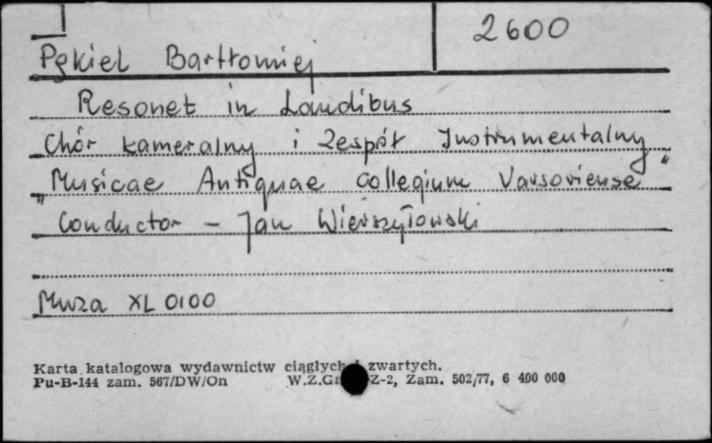 2600
Pękiel Bartłomiej
Resonet in Laudibus
Chór kameralny i Zespół Instrumentalny
"Musicae Antiquae Collegium Varsoviense"
Conductor - Jan Wierszyłowski
Muza XL 0100
Karta katalogowa wydawnictw ciągłych i zwartych.
Pu-B-144 zam. 567/DW/On W.Z.Gr Z-2, Zam. 502/77, 6 400 000